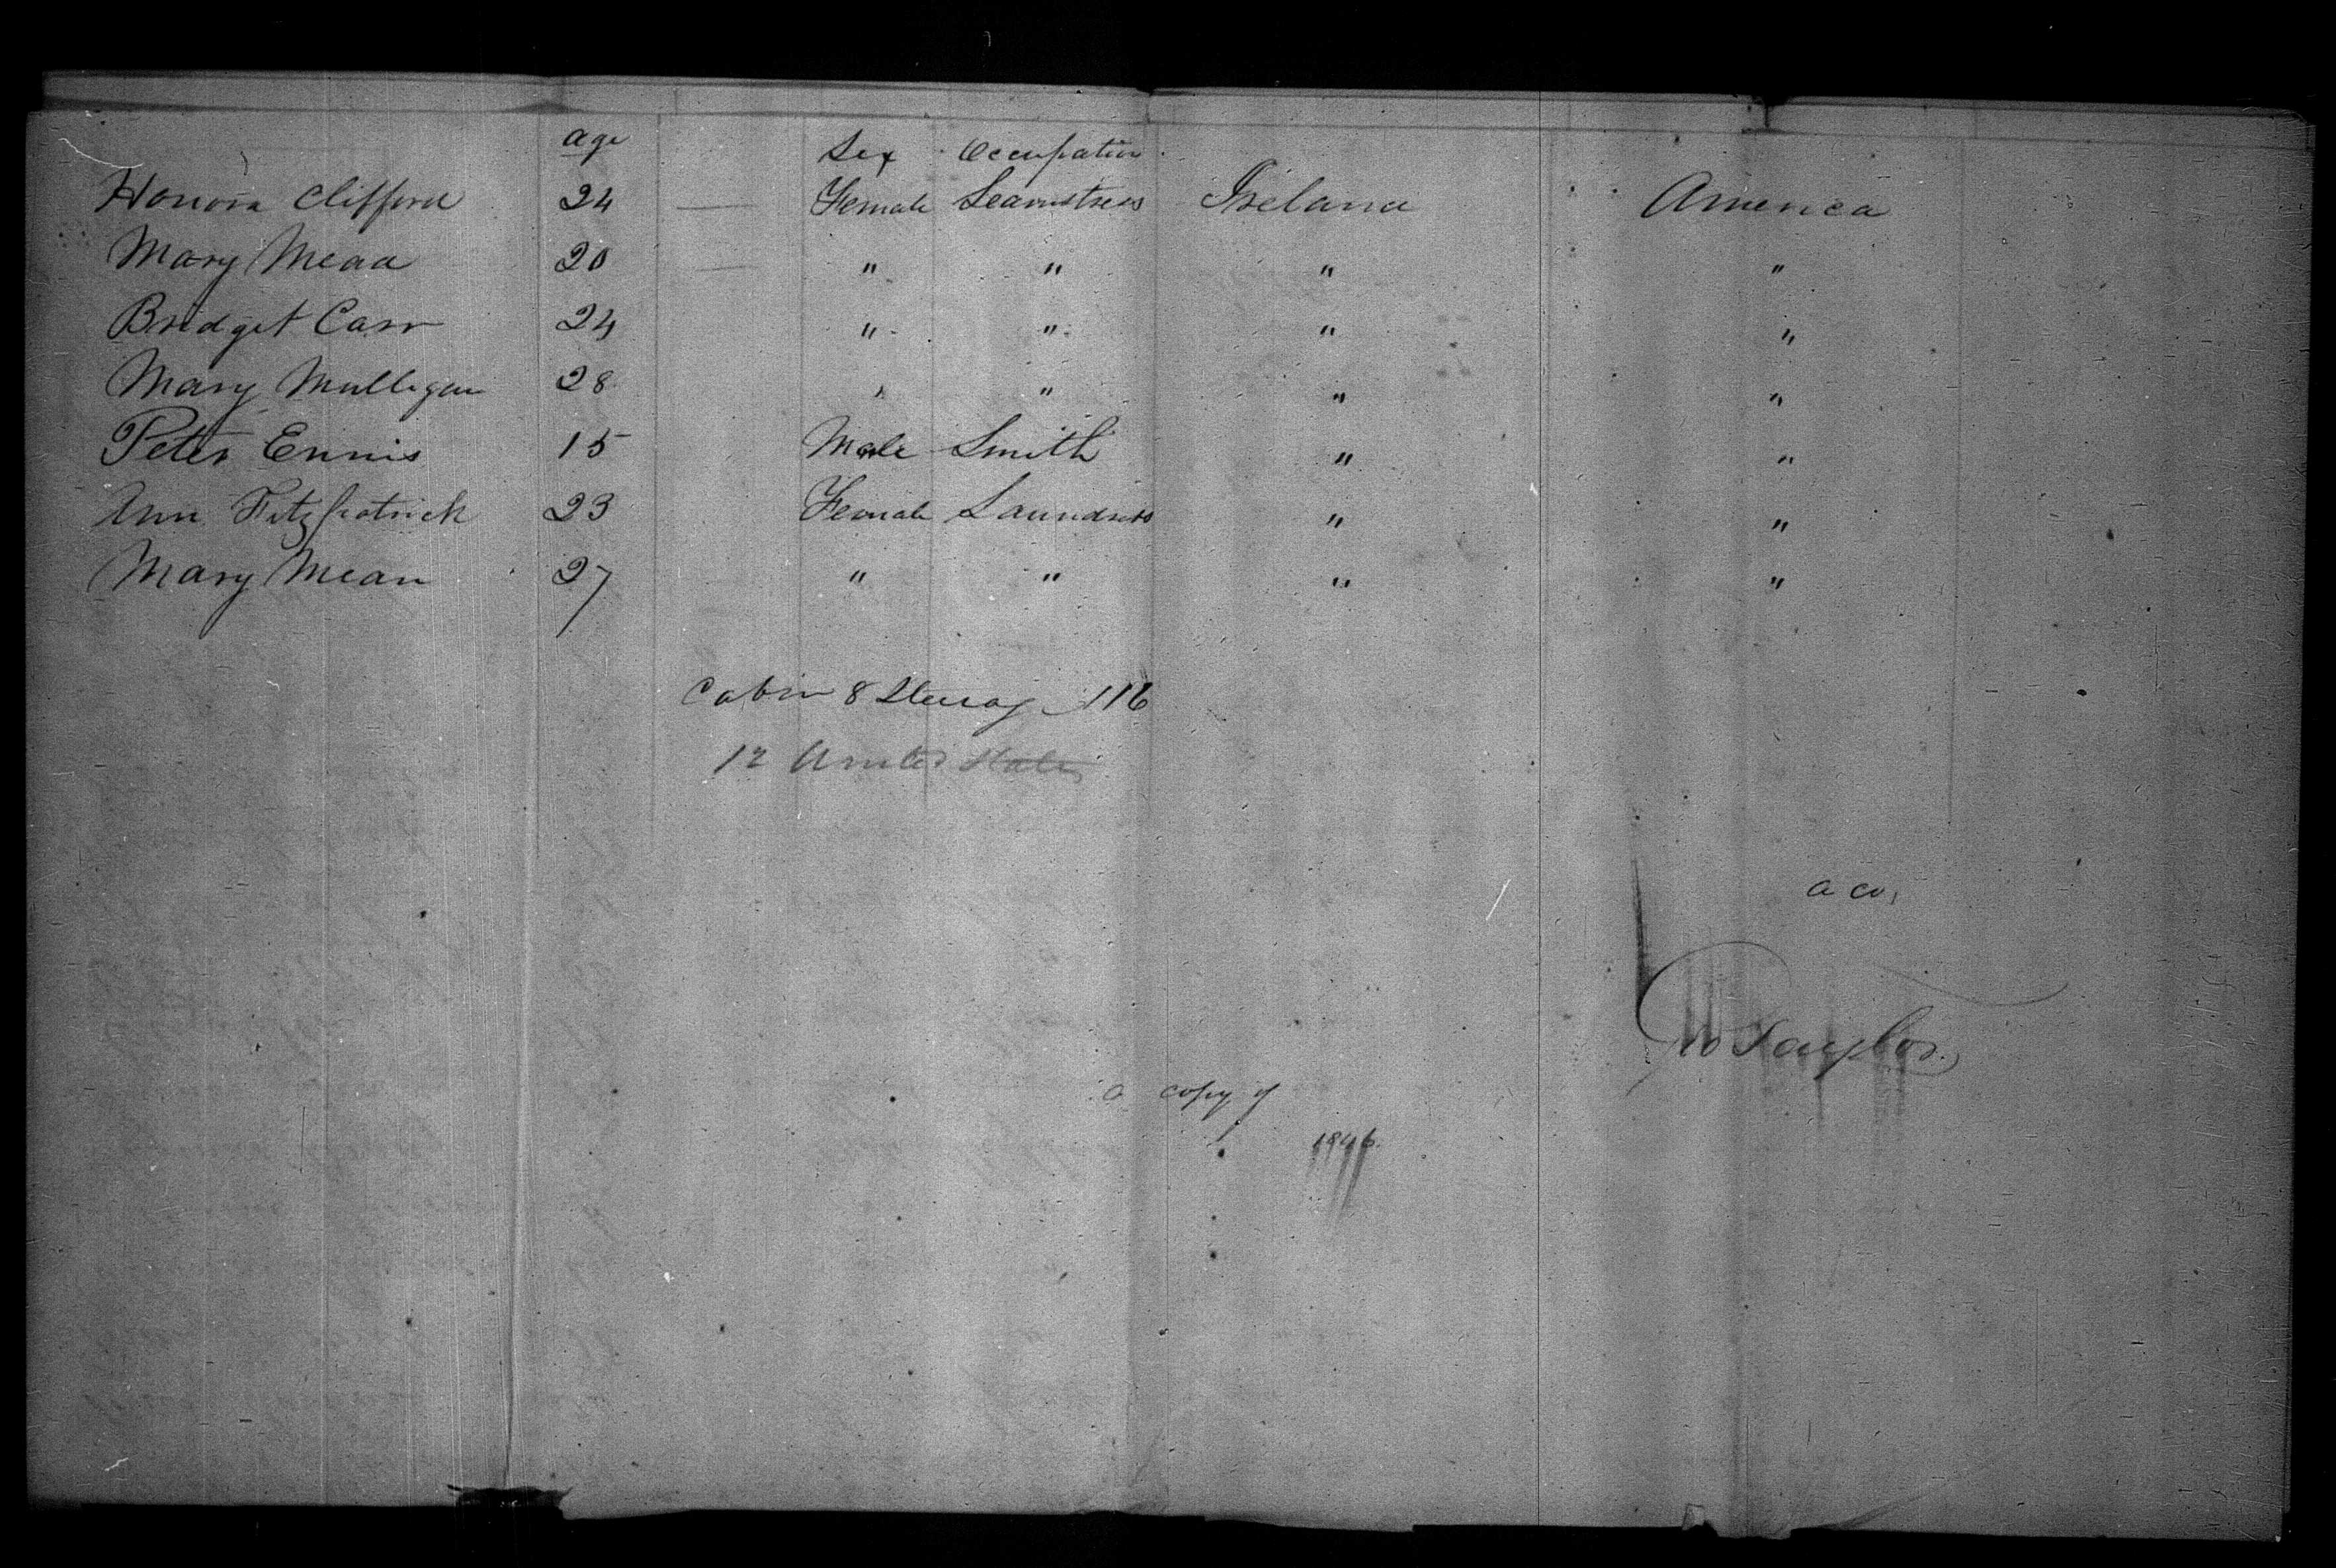 age Sex Occupation
Honora Clifford 24 — Female Seamstress Ireland America
Mary Mead 20 — " " " "
Bridget Carr 24 " " " "
Mary Mulligan 28 " " " "
Peter Ennis 15 Male Smith " "
Ann Fitzpatrick 23 Female Laundress " "
Mary Mean 27 " " " "
Cabin 8 Steerag 116
12 United States
a co,
W Taylor
a copy of
1846